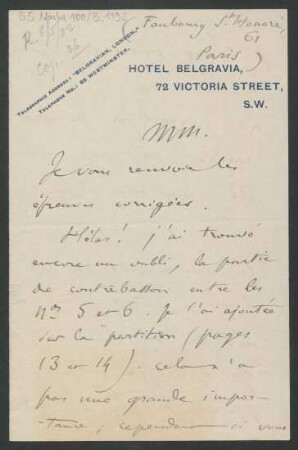 55 Nachl 100/B, 1192
(Faubourg St Honoré,
61
Paris)
TELEGRAPHIC ADDRESS: "BELGRAVIAN, LONDON."
TELEPHONE NO.: 85 WESTMINSTER.
HOTEL BELGRAVIA,
72 VICTORIA STREET,
S.W.
MM.
Je vous renvoie les
épreuves corrigées.
Hélas! j'ai trouvé
encore un oubli, la partie
de contrebasson entre les
nos 5 et 6. Je l'ai ajoutée
sur la partition (pages
13 et 14). cela n'a
pas une grande impor-
tance; cependant si vous